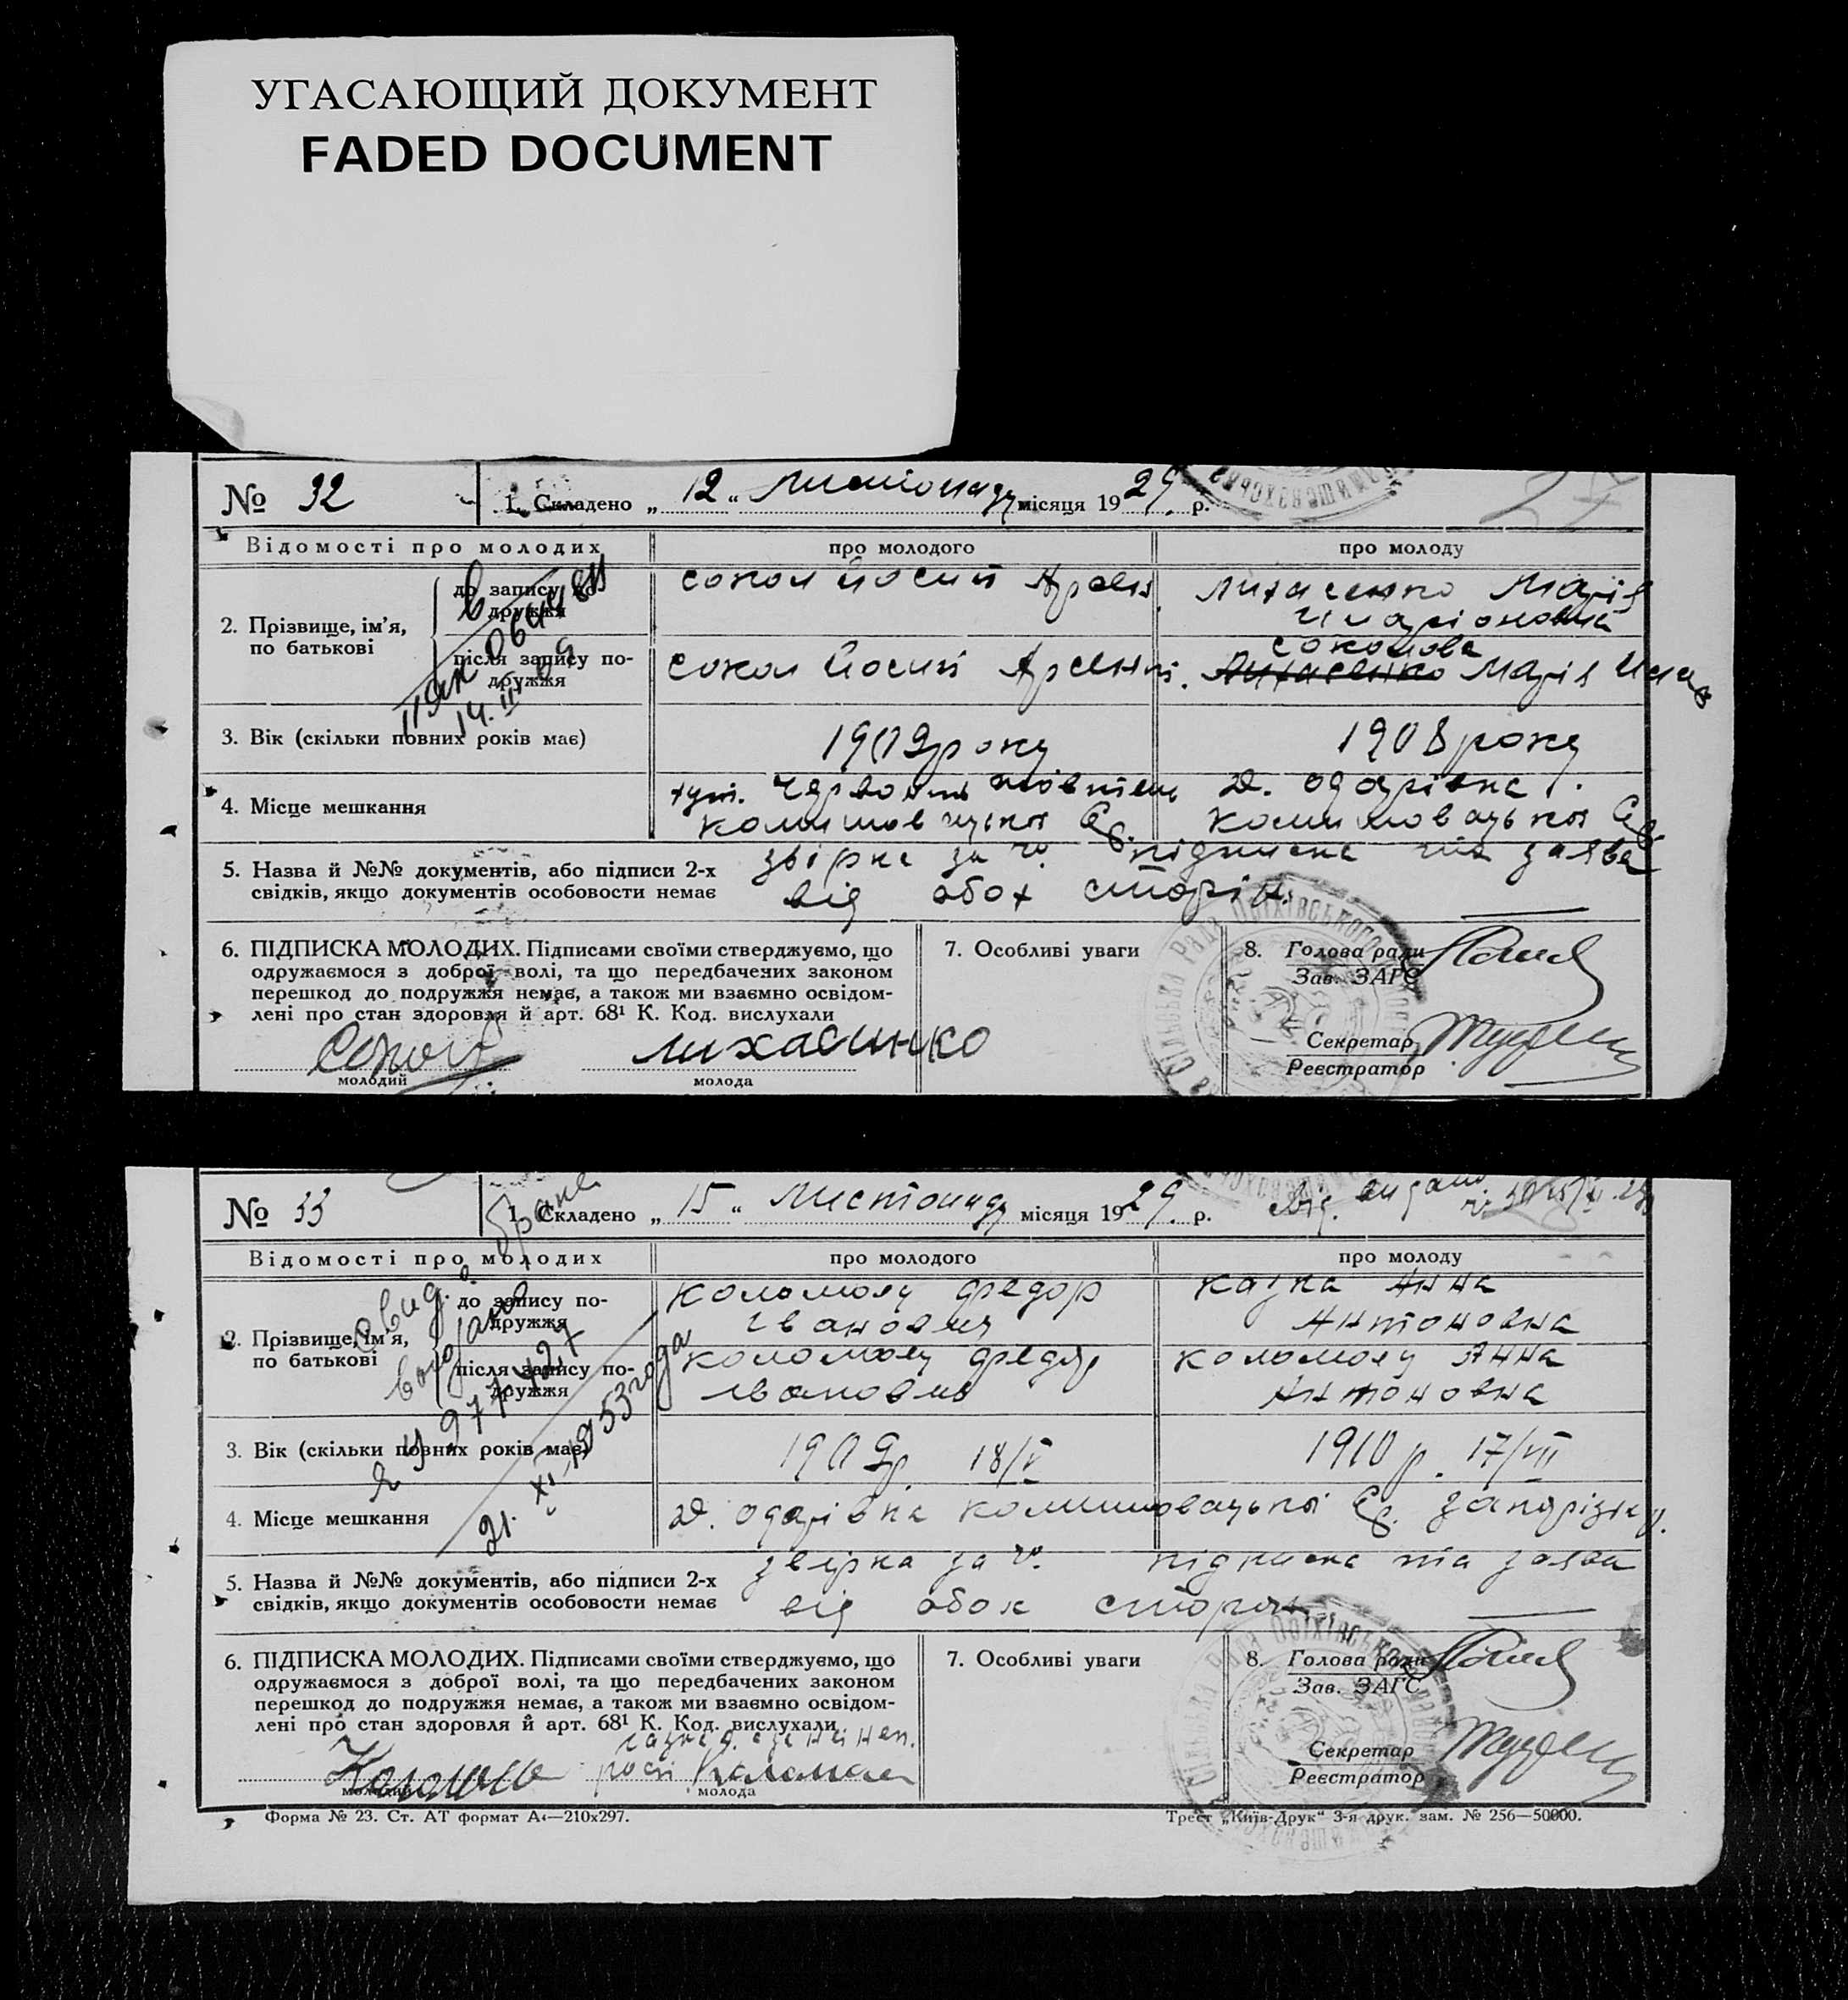 УГАСАЮЩИЙ ДОКУМЕНТ
FADED DOCUMENT
№ 32
1. Складено „ 12 “ листопаду місяця 19 29 р.
Відомості про молодих
про молодого
про молоду
2. Прізвище, ім’я, по батькові
до запису по-
дружжя
сокол Йосип Арсен.
Лихасенко Марія
Іларіоновна
після запису по-
дружжя
сокол Йосип Арсент.
соколова
Лихасенко Марія
14. III
3. Вік (скільки повних років має)
1909 року
1908 року
4. Місце мешкання
хут. Червоний
комишовацької
д. одарівка
комишовацької
5. Назва й №№ документів, або підписи 2-х
свідків, якщо документів особовости немає
звірка за №. підписка та заява
від обох сторін.
6. ПІДПИСКА МОЛОДИХ. Підписами своїми стверджуємо, що
одружаємося з доброї волі, та що передбачених законом
перешкод до подружжя немає, а також ми взаємно освідом-
лені про стан здоровля й арт. 68¹ К. Код. вислухали
Сокол
лихасинко
молодий
молода
7. Особливі уваги
8. Голова ради
Зав. ЗАГС
Секретар
Реєстратор
№ 33
1. Складено „ 15 “ листопаду місяця 19 29 р.
від. видано
Відомості про молодих
про молодого
про молоду
2. Прізвище, ім’я,
по батькові
до запису по-
дружжя
коломоєц федор
Іванович
Анна
Антоновна
після запису по-
дружжя
коломоєц федор
іванович
коломоєц Анна
Антоновна
977427
21. XI-1953 года
3. Вік (скільки повних років має)
1909р 18/V
1910 р. 17/VII
4. Місце мешкання
д. одарівка комишовацької
5. Назва й №№ документів, або підписи 2-х
свідків, якщо документів особовости немає
звірка за №. підписка та заява
від обох сторон.
6. ПІДПИСКА МОЛОДИХ. Підписами своїми стверджуємо, що
одружаємося з доброї волі, та що передбачених законом
перешкод до подружжя немає, а також ми взаємно освідом-
лені про стан здоровля й арт. 68¹ К. Код. вислухали
молодий
молода
7. Особливі уваги
8. Голова ради
Зав. ЗАГС
Секретар
Реєстратор
Форма № 23. Ст. АТ формат А₄—210х297.
Трест „Київ-Друк“ 3-я друк. зам. № 256—50000.